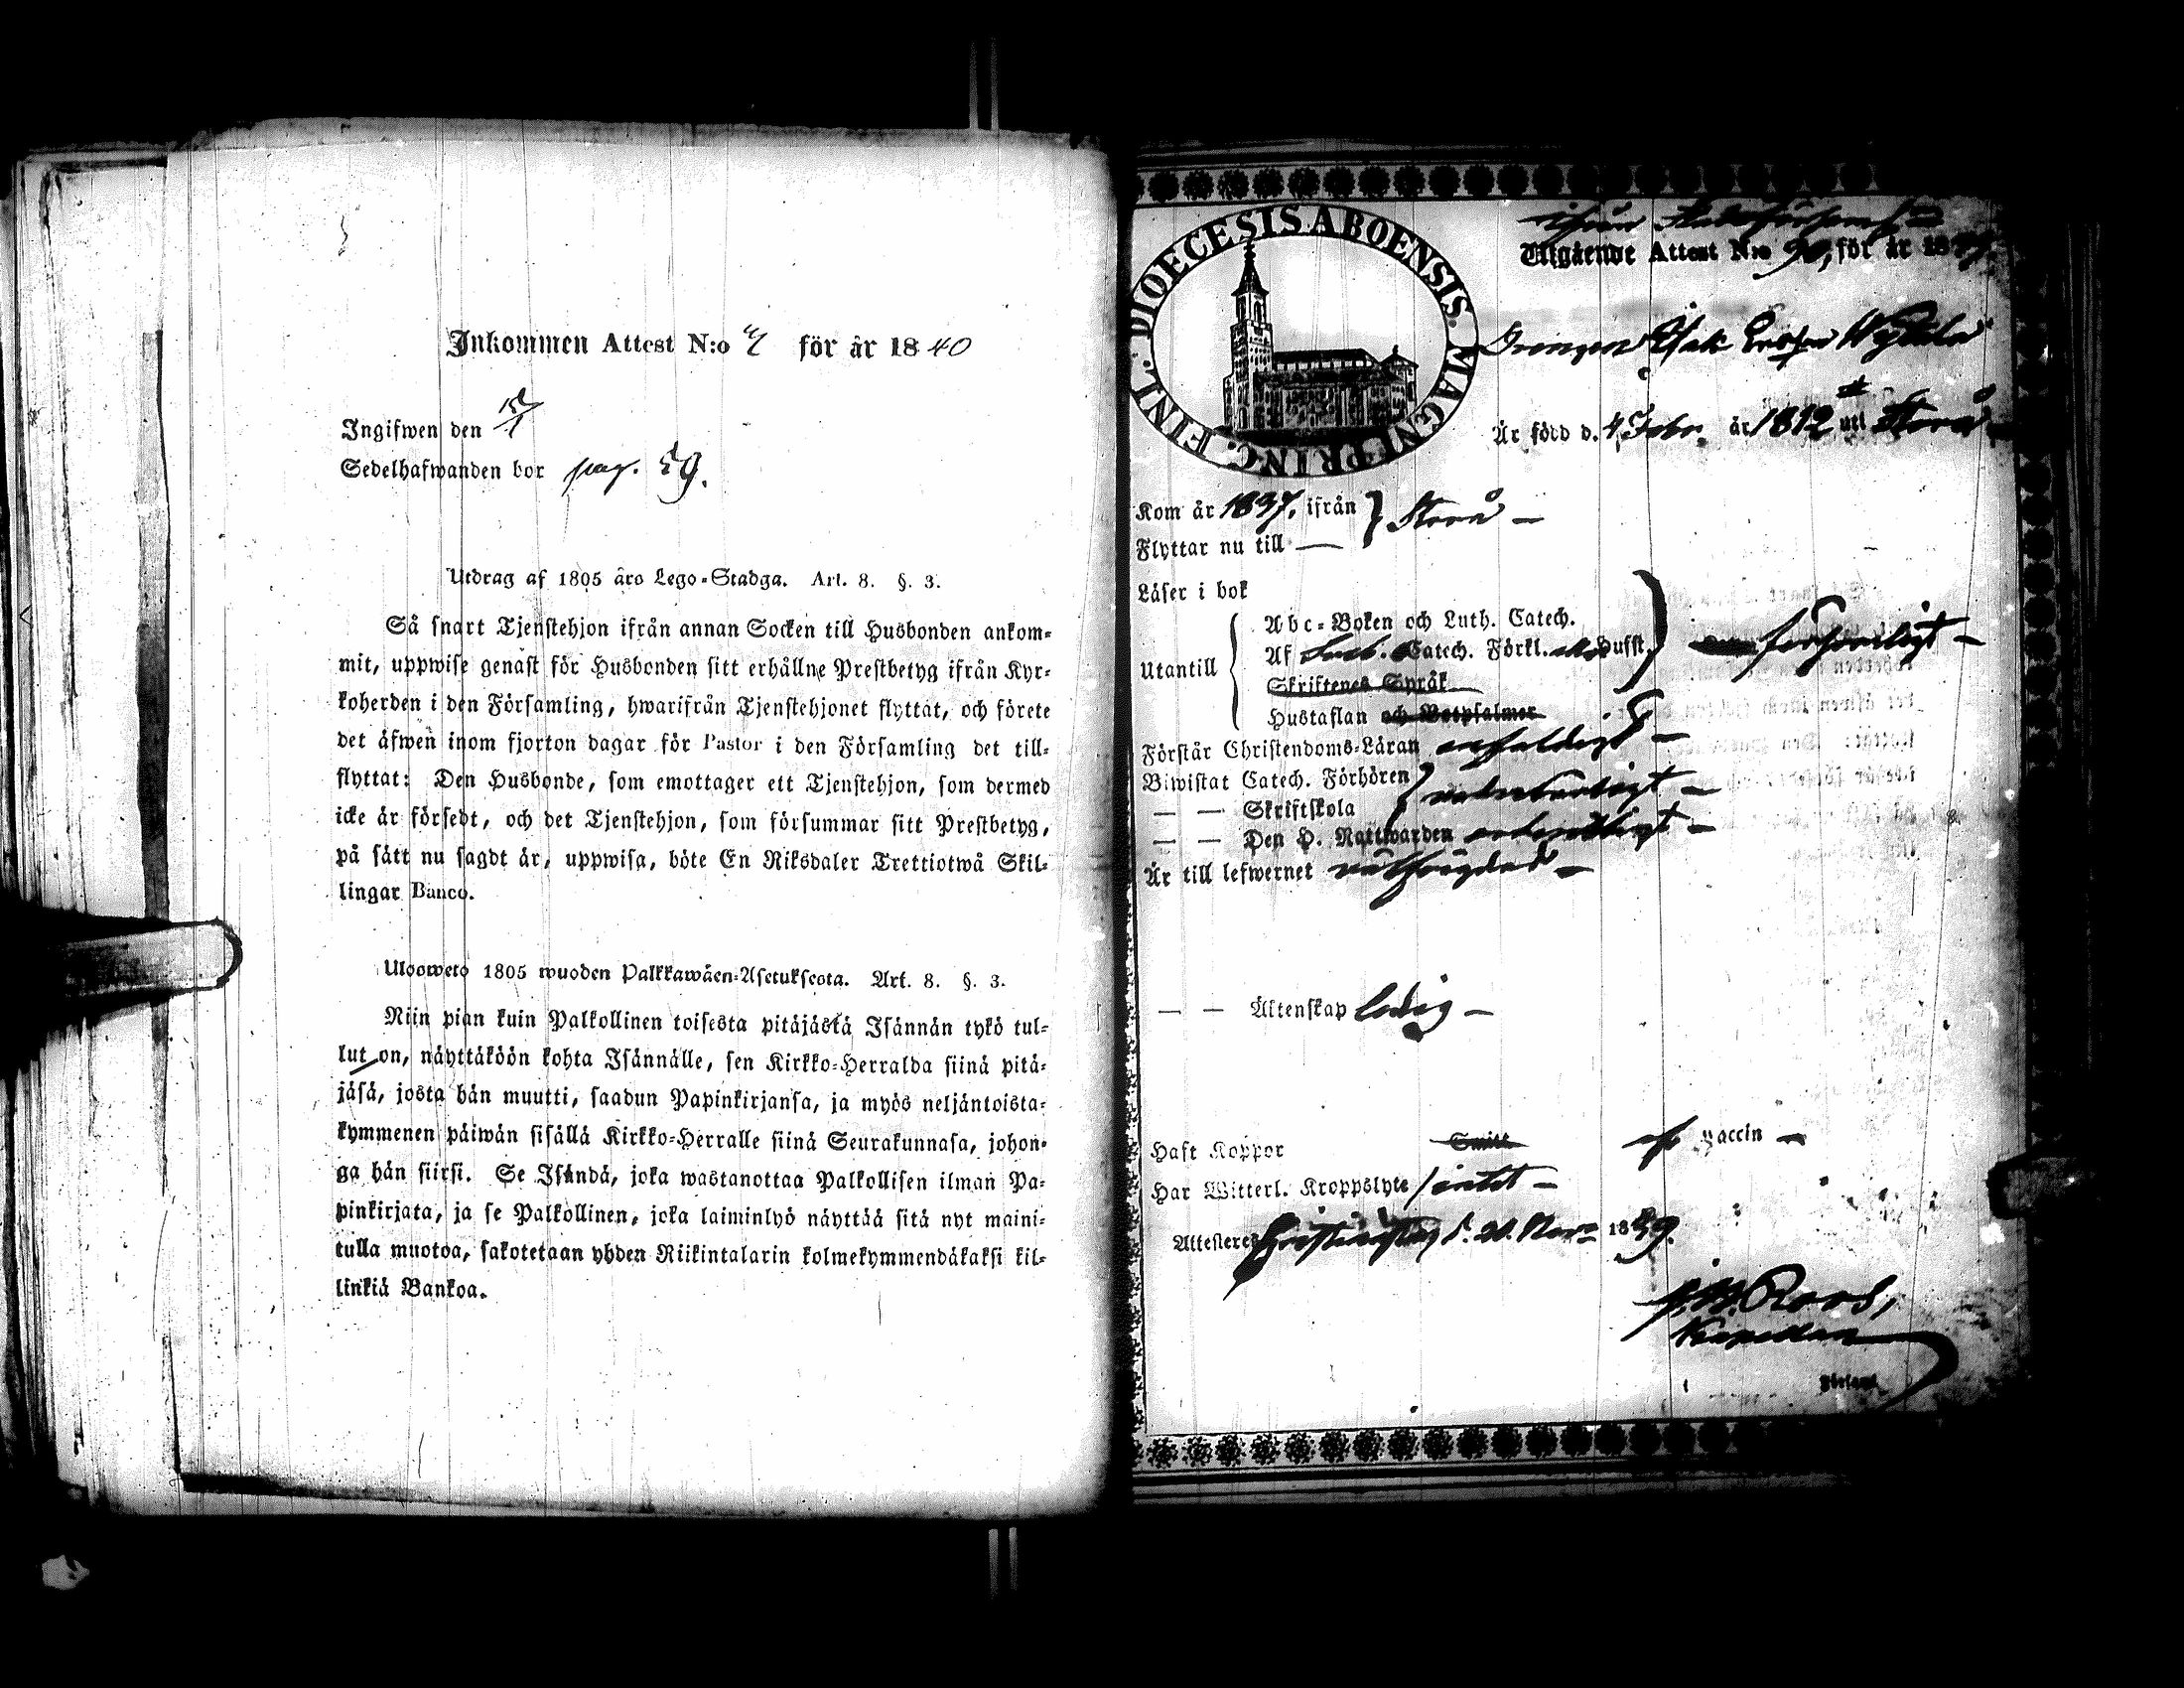 Inkommen Attest N:o 4 för år 1840
Ingifwen den 15/1
Sedelhafwanden bor pag. 59.
Utdrag af 1805 års Lego-Stadga. Art. 8. §. 3.
Så snart Tjenstehjon ifrån annan Socken till Husbonden ankom-
mit, uppwise genast för Husbonden sitt erhållne Prestbetyg ifrån Kyr-
koherden i den Församling, hwarifrån Tjenstehjonet flyttat, och förete
det äfwen inom fjorton dagar för Pastor i den Församling det till-
flyttat: Den Husbonde, som emottager ett Tjenstehjon, som dermed
icke är försedt, och det Tjenstehjon, som försummar sitt Prestbetyg,
på sätt nu sagdt är, uppwisa, böte En Riksdaler Trettiotwå Skil-
lingar Banco.
Ulosweto 1805 wuoden Palkkawäen-Asetuksesta. Art. 8. §. 3.
Niin pian kuin Palkollinen toisesta pitäjästä Isännän tykö tul-
lut on, näyttäköön kohta Isännälle, sen Kirkko-Herralda siinä pitä-
jäsä, josta hän muutti, saadun Papinkirjansa, ja myös neljäntoista-
kymmenen päiwän sisällä Kirkko-Herralle siinä Seurakunnasa, johon-
ga hän siirsi. Se Isändä, joka wastanottaa Palkollisen ilman Pa-
pinkirjata, ja se Palkollinen, joka laiminlyö näyttää sitä nyt maini-
tulla muotoa, sakotetaan yhden Riikintalarin kolmekymmendäkaksi kil-
linkiä Bankoa.
DIOECESIS ABOENSIS. MAGNI PRINC. FINL.
Utgående Attest N:o 90, för år 18
Drengen Isak
Är född d. 4 Febr. år 1812 uti Storå
Kom år 1837, ifrån } Storå —
Flyttar nu till —
Läser i bok
Abc-Boken och Luth. Catech.
Utantill { Af Catech. Förkl. förswarligt —
Skriftenes Språk
Hustaflan och Botpsalmer
Förstår Christendoms-Läran enfaldigt —
Biwistat Catech. Förhören
— — Skriftskola
— — Den H. Nattwarden ordentligt —
Är till lefwernet välfrägdad —
— — Äktenskap ledig —
Haft Koppor Smitt Vaccin —
Har Witterl. Kroppslyte / intet —
Attesteres Christinestad d. Nov. 1839.
Roos,
Kapellan